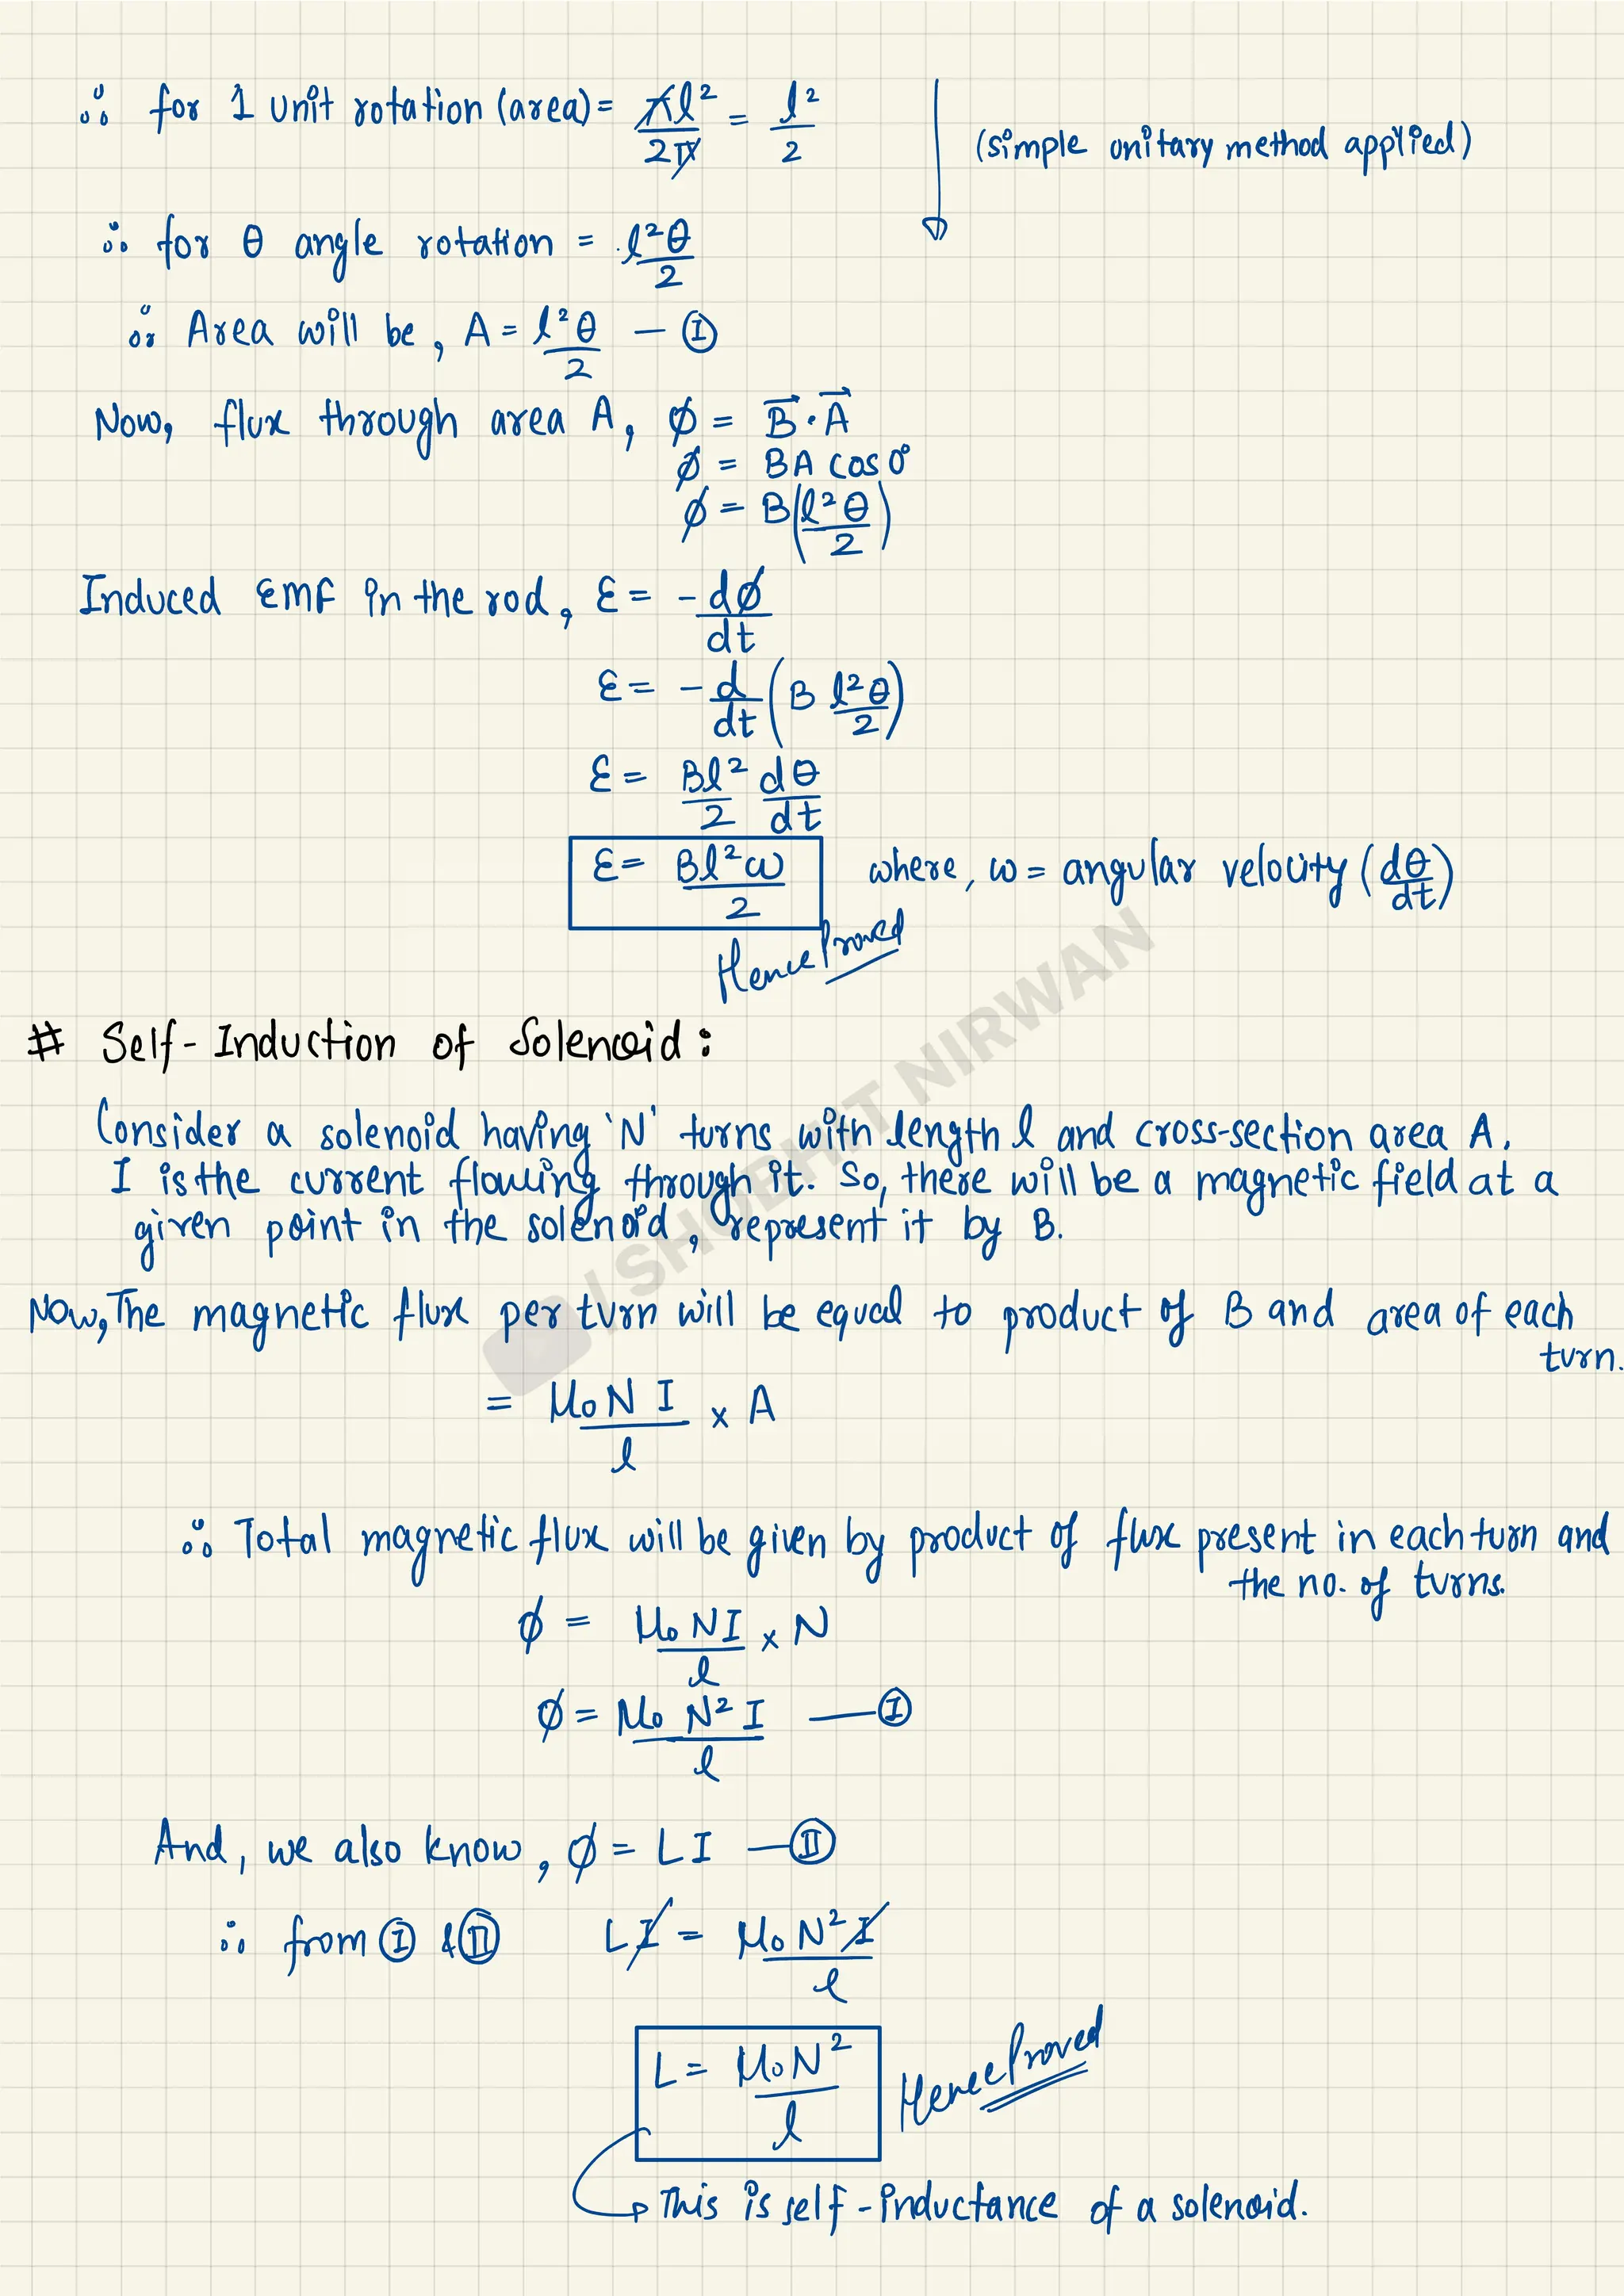 ∴ for 1 unit rotation (area) = πl²/2π = l²/2
(simple unitary method applied)
∴ for θ angle rotation = l²θ/2
∴ Area will be, A = l²θ/2 — Ⓘ
Now, flux through area A, ϕ = B⃗·A⃗
ϕ = BA cos 0°
ϕ = B(l²θ/2)
Induced EMF in the rod, ε = -dϕ/dt
ε = -d/dt (B l²θ/2)
ε = Bl²/2 dθ/dt
ε = Bl²ω/2 where, ω = angular velocity (dθ/dt)
Hence Proved
# Self-Induction of Solenoid:
Consider a solenoid having 'N' turns with length l and cross-section area A.
I is the current flowing through it. So, there will be a magnetic field at a
given point in the solenoid, represent it by B.
Now, The magnetic flux per turn will be equal to product of B and area of each
turn.
= μ₀NI/l × A
∴ Total magnetic flux will be given by product of flux present in each turn and
the no. of turns.
ϕ = μ₀NI/l × N
ϕ = μ₀N²I/l — Ⓘ
And, we also know, ϕ = LI — Ⓘ Ⓘ
∴ from Ⓘ & ⒾⒾ LI = μ₀N²I/l
L = μ₀N²/l
Hence Proved
This is self-inductance of a solenoid.
/ SHOBHIT NIRWAN